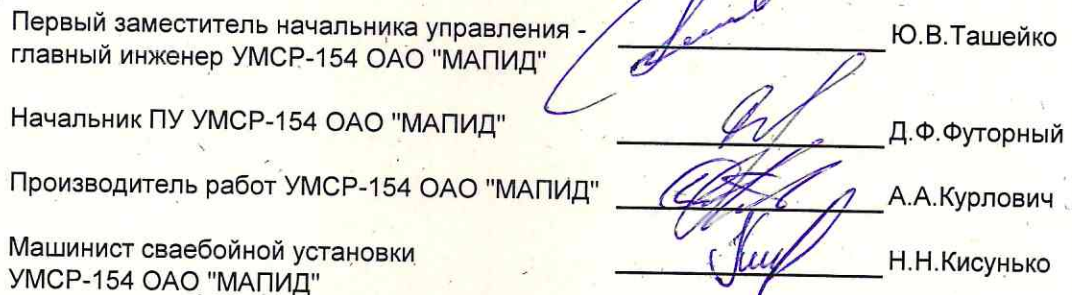 Первый заместитель начальника управления -
главный инженер УМСР-154 ОАО "МАПИД" Ю.В.Ташейко
Начальник ПУ УМСР-154 ОАО "МАПИД" Д.Ф.Футорный
Производитель работ УМСР-154 ОАО "МАПИД" А.А.Курлович
Машинист сваебойной установки
УМСР-154 ОАО "МАПИД" Н.Н.Кисунько